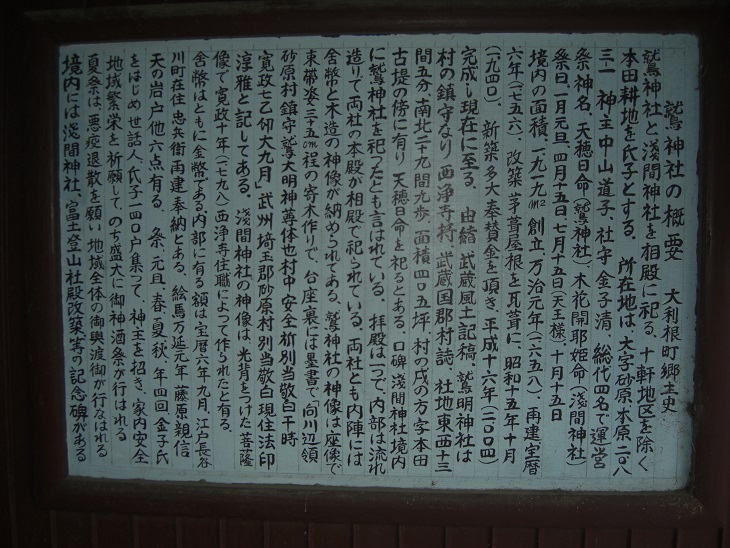 鷲神社の概要　大利根町郷土史
鷲神社と浅間神社を相殿に祀る。十軒地区を除く
本田耕地を氏子とする。所在地は、大字砂原、本原二〇八
三一　神主中山道子、社守　金子清、総代四名で運営
祭神名、天穂日命（鷲神社）木花開耶姫命（淺間神社）
祭日一月元旦、四月十五日、七月十五日（天王様）十月十五日
境内の面積一九一九m²　創立万治元年（一六五八）、再建宝暦
六年（一七五六）、改築、茅葺屋根を瓦葺に、昭和十五年十月
（一九四〇）、新築、多大奉賛金を頂き、平成十六年（二〇〇四）
完成し現在に至る。由緒　武蔵風土記稿、鷲明神社は
村の鎮守なり西浄寺持、武蔵国郡村誌、社地東西十三
間五分、南北二十九間九歩、面積四〇五坪、村の戌の方字本田
古堤の傍に有り天穂日命を祀るとある。口碑淺間神社境内
に鷲神社を祀ったとも言はれている。拝殿は一つで、内部は流れ
造りで両社の本殿が相殿で祀られている。両社とも内陣には
舍幣と木造の神像が納められてある。鷲神社の神像は座像で
束帯姿三五cm程の寄木作りで、台座裏には墨書で向川辺領
砂原村鎮守鷲大明神尊体也村中安全祈別当敬白干時
寛政七乙卯大九月」武州埼玉郡砂原村別当敬白現住法印
淳雅と記してある。淺間神社の神像は、光背をつけた菩薩
像で寛政十年（一七九八）西浄寺住職によって作られたと有る。
舍幣はともに金幣である内部に有る額は宝暦六年九月、江戸長谷
川町在住忠兵衛再建奉納とある。絵馬万延元年藤原親信
天の岩戸他六点有る。祭、元旦、春、夏、秋、年四回金子氏
をはじめ世話人、氏子一四〇戸集って、神主を招き、家内安全
地域繁栄を祈願して、のち盛大に御神酒祭が行はれる
夏祭は、悪疫退散を願い地域全体の御輿渡御が行なはれる
境内には淺間神社、富士登山社殿改築等の記念碑がある